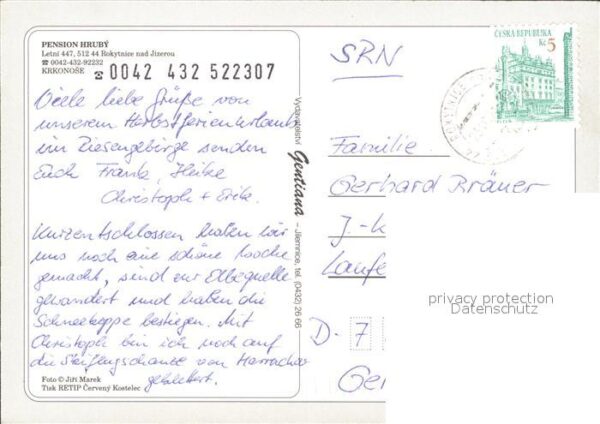 PENSION HRUBÝ
Letní 447, 512 44 Rokytnice nad Jizerou
☎ 0042-432-92232
KRKONOŠE ☎ 0042 432 522307
Viele liebe Grüße von
unserem Herbstferienurlaub
im Riesengebirge senden
Euch Frank, Heike
Christoph + Erik.
Kurzentschlossen haben wir
uns noch eine schöne Woche
gemacht, sind zur Elbequelle
gewandert und haben die
Schneekoppe bestiegen. Mit
Christoph bin ich noch auf
die Skiflugschanze von Harrachov
geklettert.
Foto © Jiří Marek
Tisk RETIP Červený Kostelec
Vydavatelství Gentiana – Jilemnice, tel. (0432) 26 66
ČESKÁ REPUBLIKA
Kč 5
ROKYTNICE
SRN
Familie
Gerhard Kräuer
J-K
Laufe
D-7
Ge
privacy protection
Datenschutz